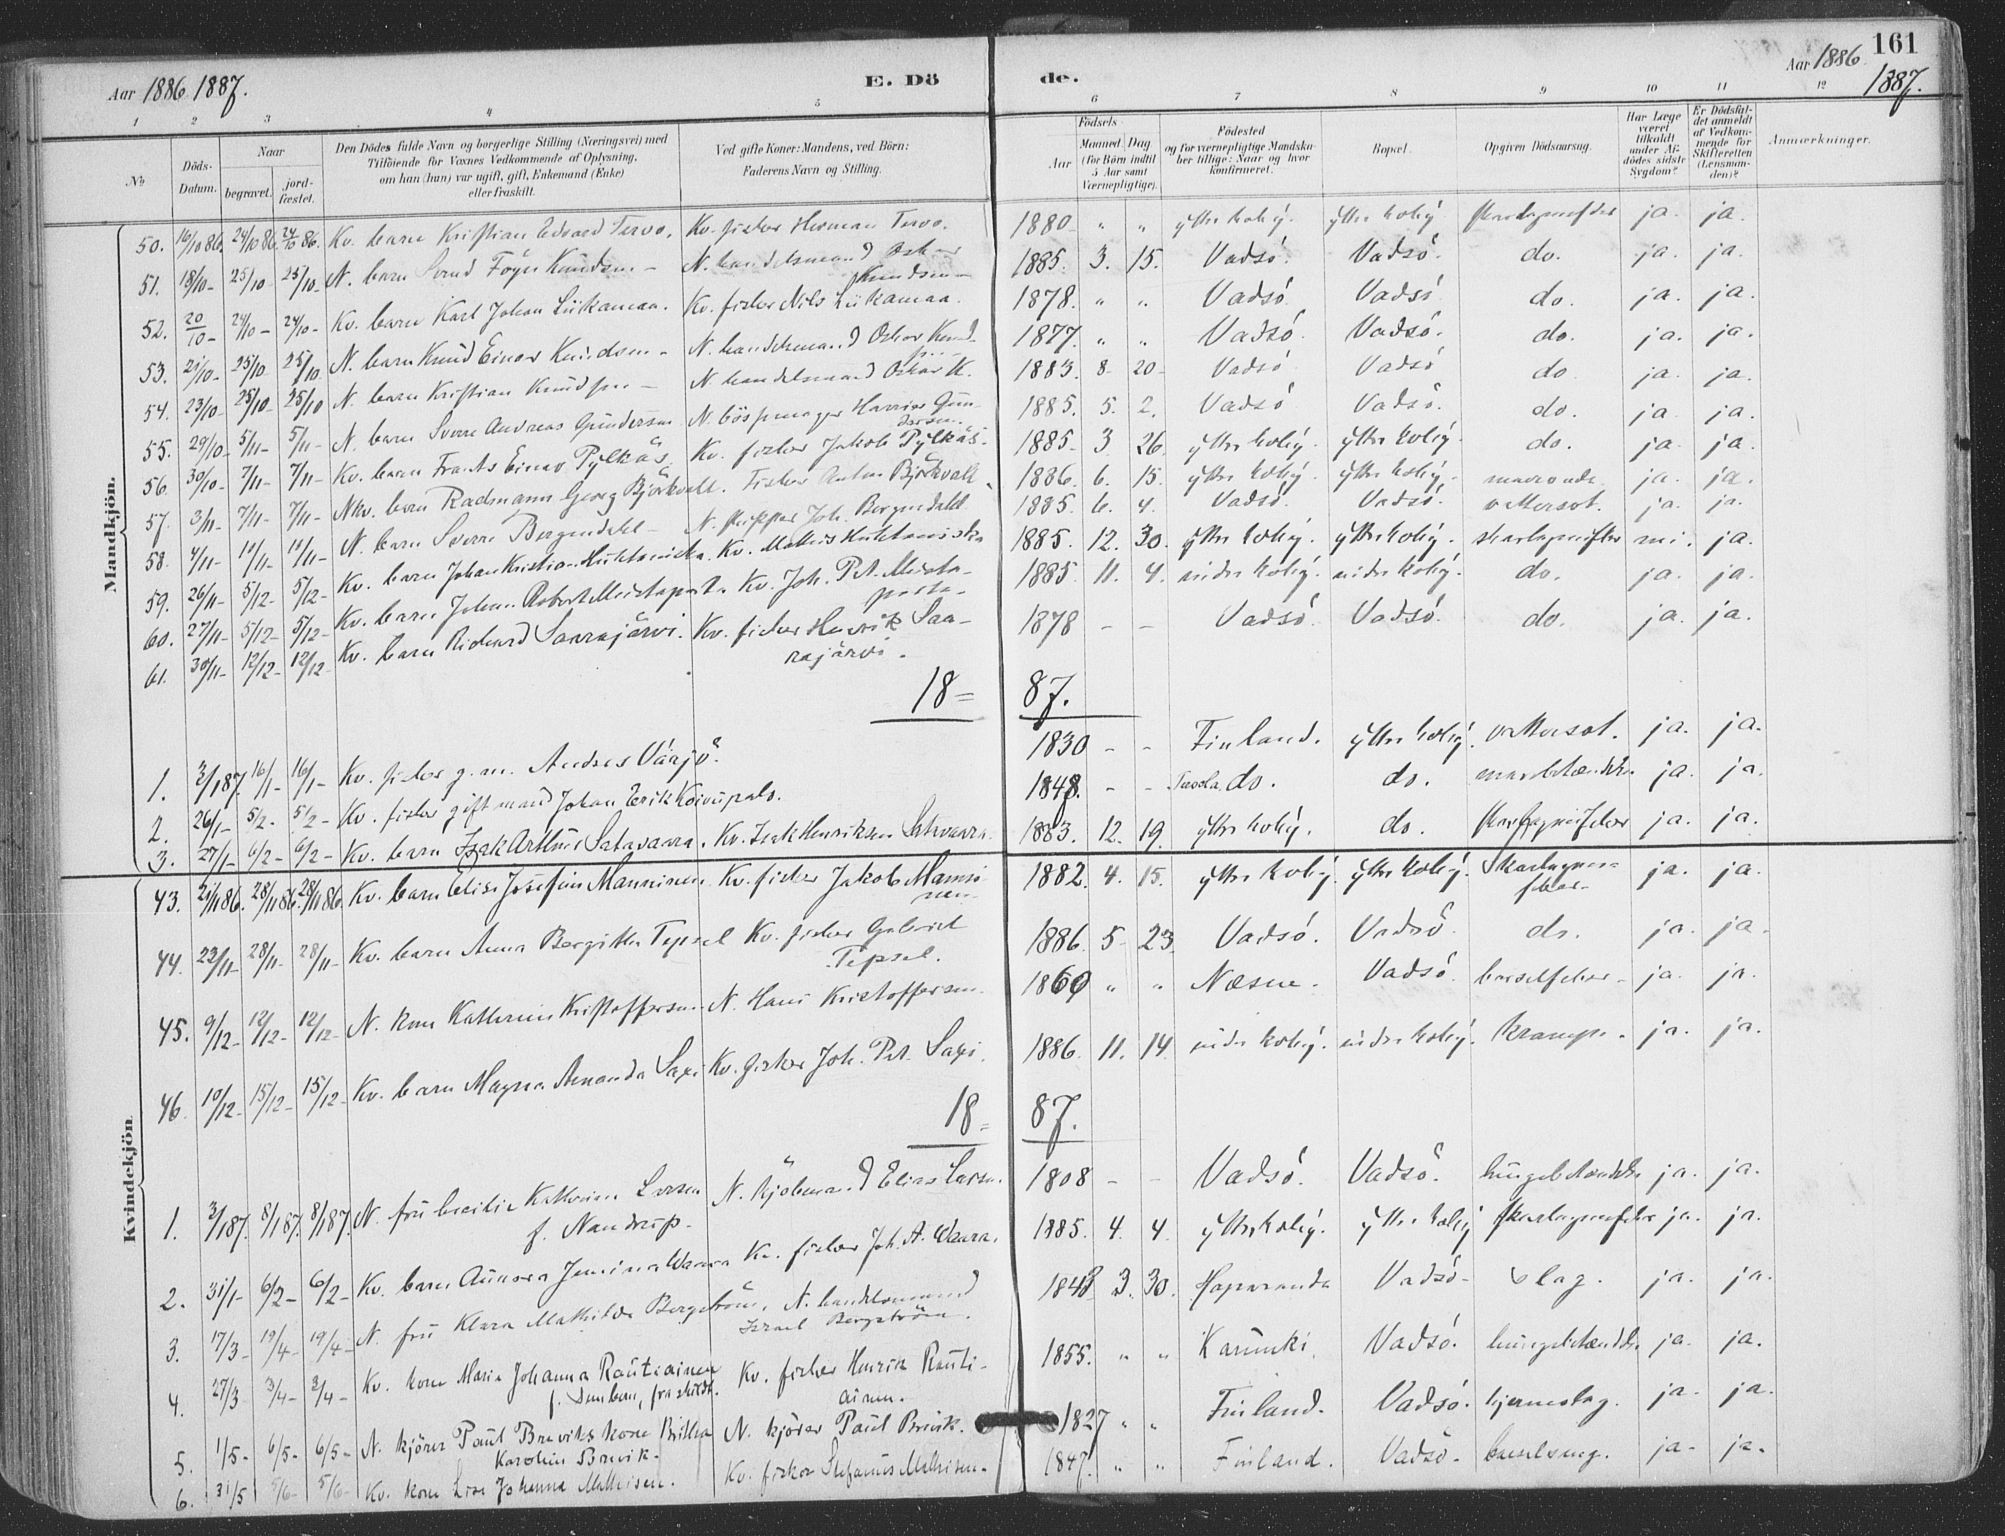 161
Aar 1886 1887.
E. Dö
de.
Aar 1886
1887.
1 2 3 4 5 6 7 8 9 10 11 12
No
Döds-Datum.
Naar
begravet.
jord-fæstet.
Den Dödes fulde Navn og borgerlige Stilling (Næringsvei) med
Tilföiende for Voxnes Vedkommende af Oplysning,
om han (hun) var ugift, gift, Enkemand (Enke)
eller fraskilt.
Ved gifte Koner: Mandens, ved Börn:
Faderens Navn og Stilling.
Födsels
Aar
Maaned Dag
(for Börn indtil
5 Aar samt
Værnepligtige).
Födested
og for værnepligtige Mandska-
ber tillige: Naar og hvor
konfirmeret.
Bopæl.
Opgiven Dödsaarsag.
Har Læge
været
tilkaldt
under Af-
dödes sidste
Sygdom?
Er Dödsfal-
det anmeldt
af Vedkom-
mende for
Skifteretten
(Lensman-
den)?
Anmærkninger.
Mandkjön.
50. 16/10 86. 24/10 86. 24/10 86. Kv. barn Kristian Edvard Tervo. Kv. fisker Herman Tervo. 1880 " " ytre koly. ytre koly. skarlagensfeber ja. ja.
51. 18/10- 25/10 25/10- N. barn Svend Föyn Knudsen - N. handelsmand Oskar Knudsen - 1885. 3. 15. Vadsö. Vadsö. do. ja. ja.
52. 20/10- 24/10- 24/10- Kv. barn Karl Johan Liikamaa. Kv. fisker Nils Liikamaa. 1878. " " Vadsö Vadsö do. ja. ja.
53. 21/10- 25/10 25/10 N. barn Knud Einar Knudsen - N. handelsmand Oskar Knud 1877. " " Vadsö. Vadsö. do. ja. ja.
54. 23/10- 25/10- 25/10 N. barn Kristian Knudsen - N. handelsmand Oskar K. 1883. 8- 20- Vadsö Vadsö do. ja. ja.
55. 29/10- 5/11- 5/11- N. barn Sverre Andreas Gundersen N. bösmager Gun-dersen. 1885. 5. 2. Vadsö Vadsö. do. ja. ja.
56. 30/10- 7/11- 7/11- Kv. barn Frants Einar Pylkäs. Kv. fisker Jakob Pylkäs. 1885. 3 26. ytre koly. ytre koly. do. ja. ja.
57. 3/11- 7/11- 7/11- Nkv. barn Radmann Georg Björkvall. Fisker Anton Björkvall. 1886. 6. 15. ytre koly. ytre koly. ja. ja.
58. 4/11- 10/11- 10/11- N. barn Sverre Bergendahl - N. skipper Joh. Bergendahl 1885. 6. 4. Vadsö. Vadsö. vattersot. ja. ja.
59. 26/11- 5/12- 5/12- Kv. barn Johan Kristian Huhtaniska. Kv. Mathis Huhtaniska 1885. 12. 30. ytre koly. ytre koly. skarlagensfeber nei. ja.
60. 27/11- 5/12- 5/12- Kv. barn Johan Robert Kv. Joh. Pet. 1885 11. 4. nidre koly. nidre koly. do. ja. ja.
61. 30/11- 12/12- 12/12- Kv. barn Richard Saarajärvi. Kv. fisker Henrik Saa-rajärvi. 1878 - - Vadsö. Vadsö. do. ja. ja.
18= 87.
1. 2/1 87. 16/1- 16/1- Kv. fisker g. m. Andres Vaarjö. 1830 - - Finland. ytre koly. vattersot. ja. ja.
2. 26/1- 5/2- 5/2- Kv. fisker gift mand Johan Erik Koivupalo. 1848. - - do. do. ja. ja.
3. 27/1- 6/2- 6/2- Kv. barn Isak Arthur Satavaara. Kv. Isak Henriksen Satavaara 1883. 12. 19. ytre koly. do. skarlagensfeber ja. ja.
Kvindekjön
43. 21/11 86. 28/11 86. 28/11 86. Kv. barn Elise Josefine Manninen Kv. fisker Jakob Manni-nen- 1882. 4. 15. ytre koly. ytre koly. skarlagens-feber- ja. ja.
44. 22/11- 28/11- 28/11- Kv. barn Anna Bergitte Tepsel Kv. fisker Gabriel Tepsel. 1886. 5- 23 Vadsö. Vadsö do. ja. ja.
45. 9/12- 12/12- 12/12- N. kone Kathrine Kristoffersen N. Hans Kristoffersen. 1860 " " Næsne. Vadsö. barselfeber- ja. ja.
46. 10/12- 15/12- 15/12- Kv. barn Magna Amanda Saxi Kv. fisker Joh. Pet. Saxi. 1886. 11. 14. nidre koly. nidre koly. krampe. ja. ja.
18= 87.
1. 3/1 87. 8/1 87. 8/1 87. N. fru Cecilie Kathrine Larsen f. Nandrup. N. kjöbmand Elias Larsen. 1808 - - Vadsö. Vadsö. lungebetændelse ja. ja.
2. 31/1- 6/2- 6/2- Kv. barn Aurora Jemina Waara Kv. fisker Joh. A. Waara. 1885. 4. 4. ytre koly. ytre koly skarlagensfeber ja. ja.
3. 17/3- 19/4- 19/4- N. fru Klara Mathilde Bergström. N. handelsmand Israel Bergström. 1848 3. 30. Haparanda Vadsö- slag. ja. ja.
4. 27/3 3/4- 3/4- Kv. kone Maria Johanna Rautiainen Kv. fisker Henrik Rauti-ainen. 1855. " " Karunki. Vadsö. lungebetændelse ja. ja.
5. 1/5- 6/5- 6/5- N. kjörer Paul Breviks kone Britha Karoline Brevik. N. kjörer Paul Brevik. 1827 " " Finland. Vadsö. hjerneslag. ja. ja.
6. 31/5 5/6- 5/6- Kv. kone Lisa Johanna Mathisen. Kv. fisker Stefanus Mathisen. 1847. " " Finland. Vadsö. barselseng. ja- ja.